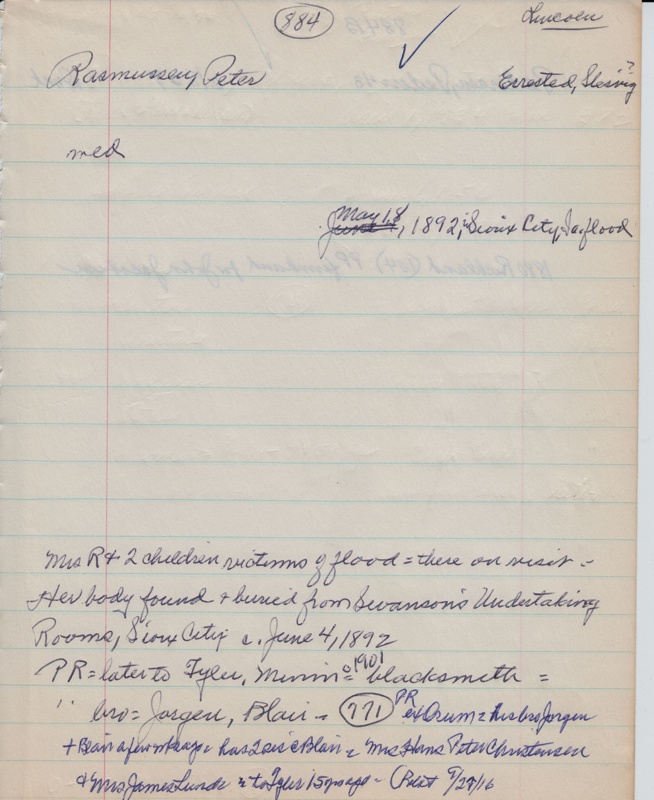 884
Lincoln
Rasmussen, Peter
Errested, Slesvig ?
med
June 4 May 18, 1892, Sioux City, Ia flood
Mrs R + 2 children victims of flood = there on visit -
Her body found + buried from Swanson's Undertaking
Rooms, Sioux City c. June 4, 1892
PR = later to Tyler, Minn = c 1901 blacksmith =
" bro = Jorgen, Blair - 771 PR ex Orum = his bro Jorgen
+ Blair a few wks ago = has 2 sis c Blair = Mrs Hans Peter Christensen
+ Mrs James Lunde = to Tyler 15 yrs ago - (Pilot 9/27/16